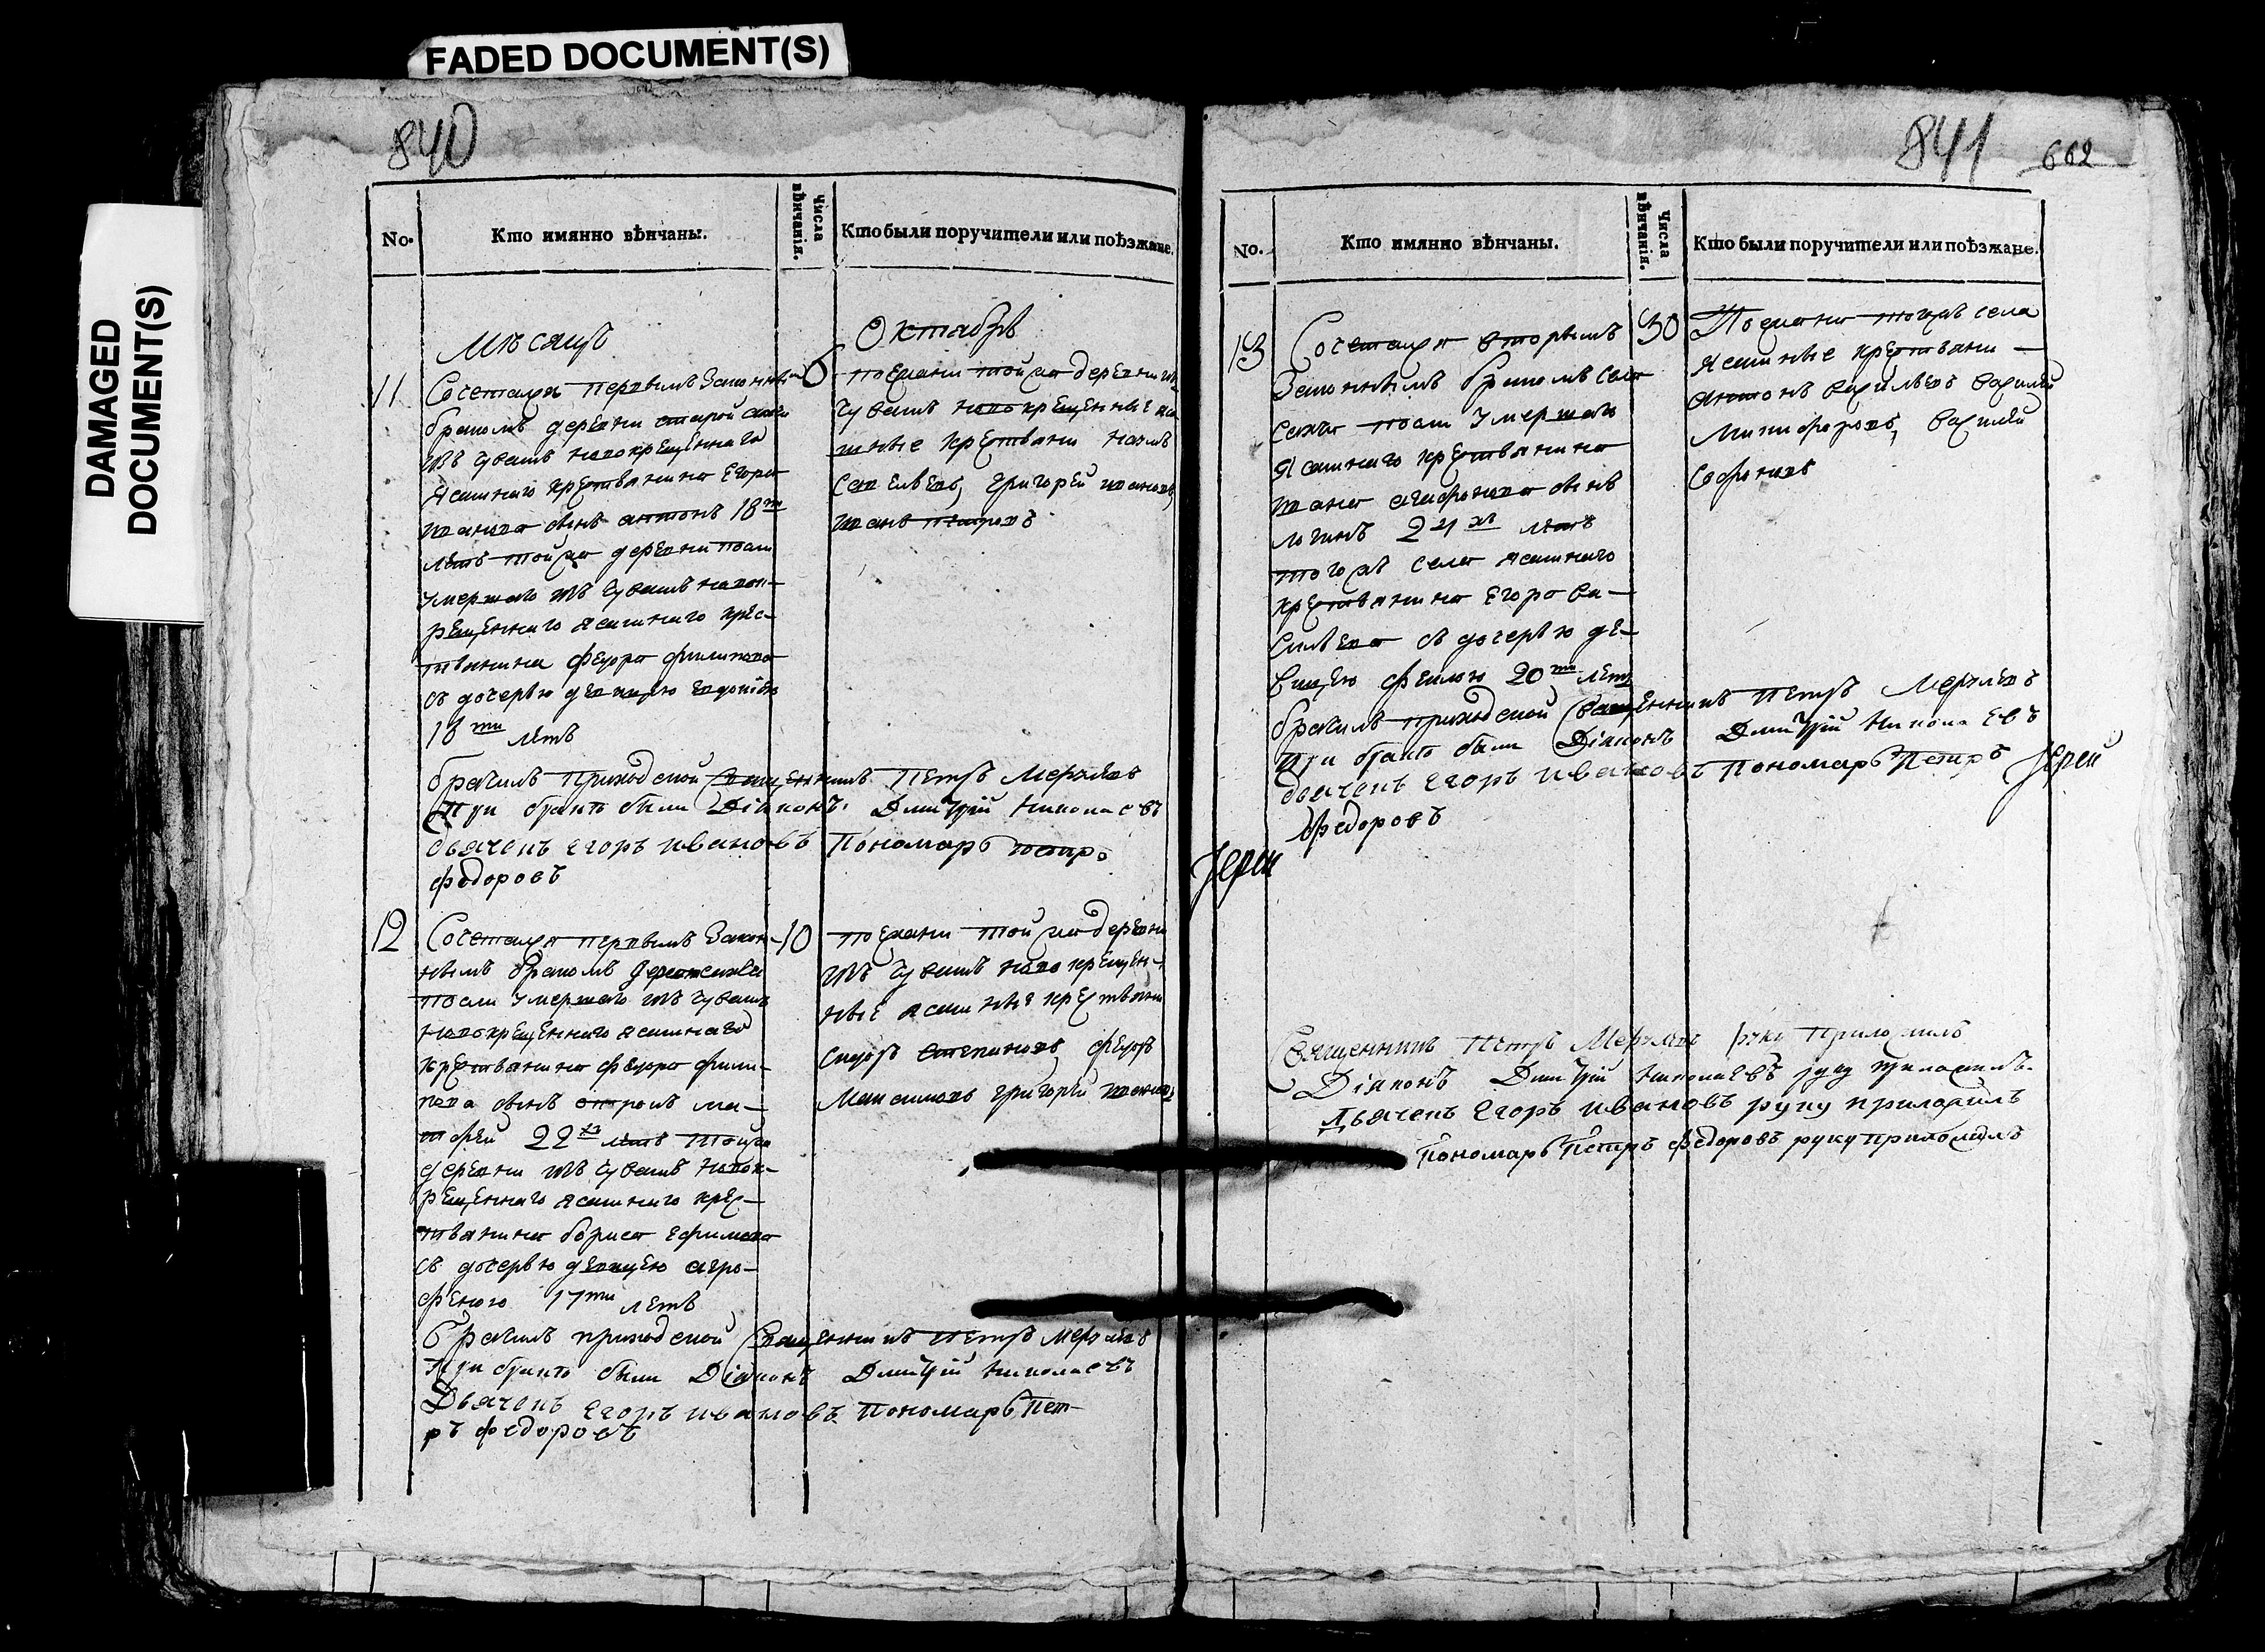 FADED DOCUMENT(S)
DAMAGED
DOCUMENT(S)
840
No.
Кто имянно вѣнчаны.
Числа
вѣнчанія.
Кто были поручители или поѣзжане.
Мѣсяцъ
Октябрь
11
Сочетался первымъ законнымъ
бракомъ деревни старой
изъ чувашъ новокрещеннаго
ясашнаго крестьянина Егора
Иванова сынъ антонъ 18 ти
лѣтъ тойжа деревни посли
умершаго изъ чувашъ новок-
рещеннаго ясашнаго крес-
тьянина федора филипова
съ дочерью девицею евдокіею
18 ти лѣтъ
6
поежани тойжа деревни изъ
чувашъ новокрещенные яса
шные крестьяни
Савельевъ, григорей ивановъ,
иванъ петровъ
брачилъ приходской Священникъ Петръ
При бракѣ были Діаконъ Дмитрій николаевъ
дьячекъ Егоръ ивановъ Пономарь петръ
федоровъ
12
Сочетался первымъ закон-
нымъ бракомъ
посли умершаго изъ чувашъ
новокрещеннаго ясашнаго
крестьянина федора фили-
пова сынъ отрокъ ма-
тфей 22 хъ лѣтъ тойжа
деревни изъ чувашъ новок-
рещеннаго ясашнаго крес-
тьянина бориса ефимова
съ дочерью девицею агро-
феною 17 ти лѣтъ
10
поежани тойжа деревни
изъ чувашъ новокрещен-
ные ясашные крестьяни
Сидоръ степановъ, федоръ
Максимовъ григорей ивановъ
Брачилъ приходской Священникъ Петръ
При бракѣ были Діаконъ Дмитрій николаевъ
Дьячекъ Егоръ ивановъ Пономарь Пет-
ръ федоровъ
Іерей
841
662
No.
Кто имянно вѣнчаны.
Числа
вѣнчанія.
Кто были поручители или поѣзжане.
13
Сочетался вторымъ
законнымъ бракомъ села
посли умершаго
ясашнаго крестьянина
ивана агафонова сынъ
логинъ 24 хъ лѣтъ
тогожъ села ясашнаго
крестьянина Егора ва-
сильева съ дочерью де-
вицею феклою 20 ти лѣтъ
30
Поежана тогожъ села
ясашные крестьяни
антонъ васильевъ василей
Никифоровъ, василей
Софоновъ
брачилъ приходской Священникъ Петръ
При бракѣ были Діаконъ Дмитрій николаевъ
дьячекъ Егоръ ивановъ Пономарь Петръ
федоровъ
Іерей
Священникъ Петръ руку приложилъ
Діаконъ Дмитрій николаевъ руку приложилъ
Дьячекъ Егоръ ивановъ руку приложилъ
Пономарь Петръ федоровъ руку приложилъ